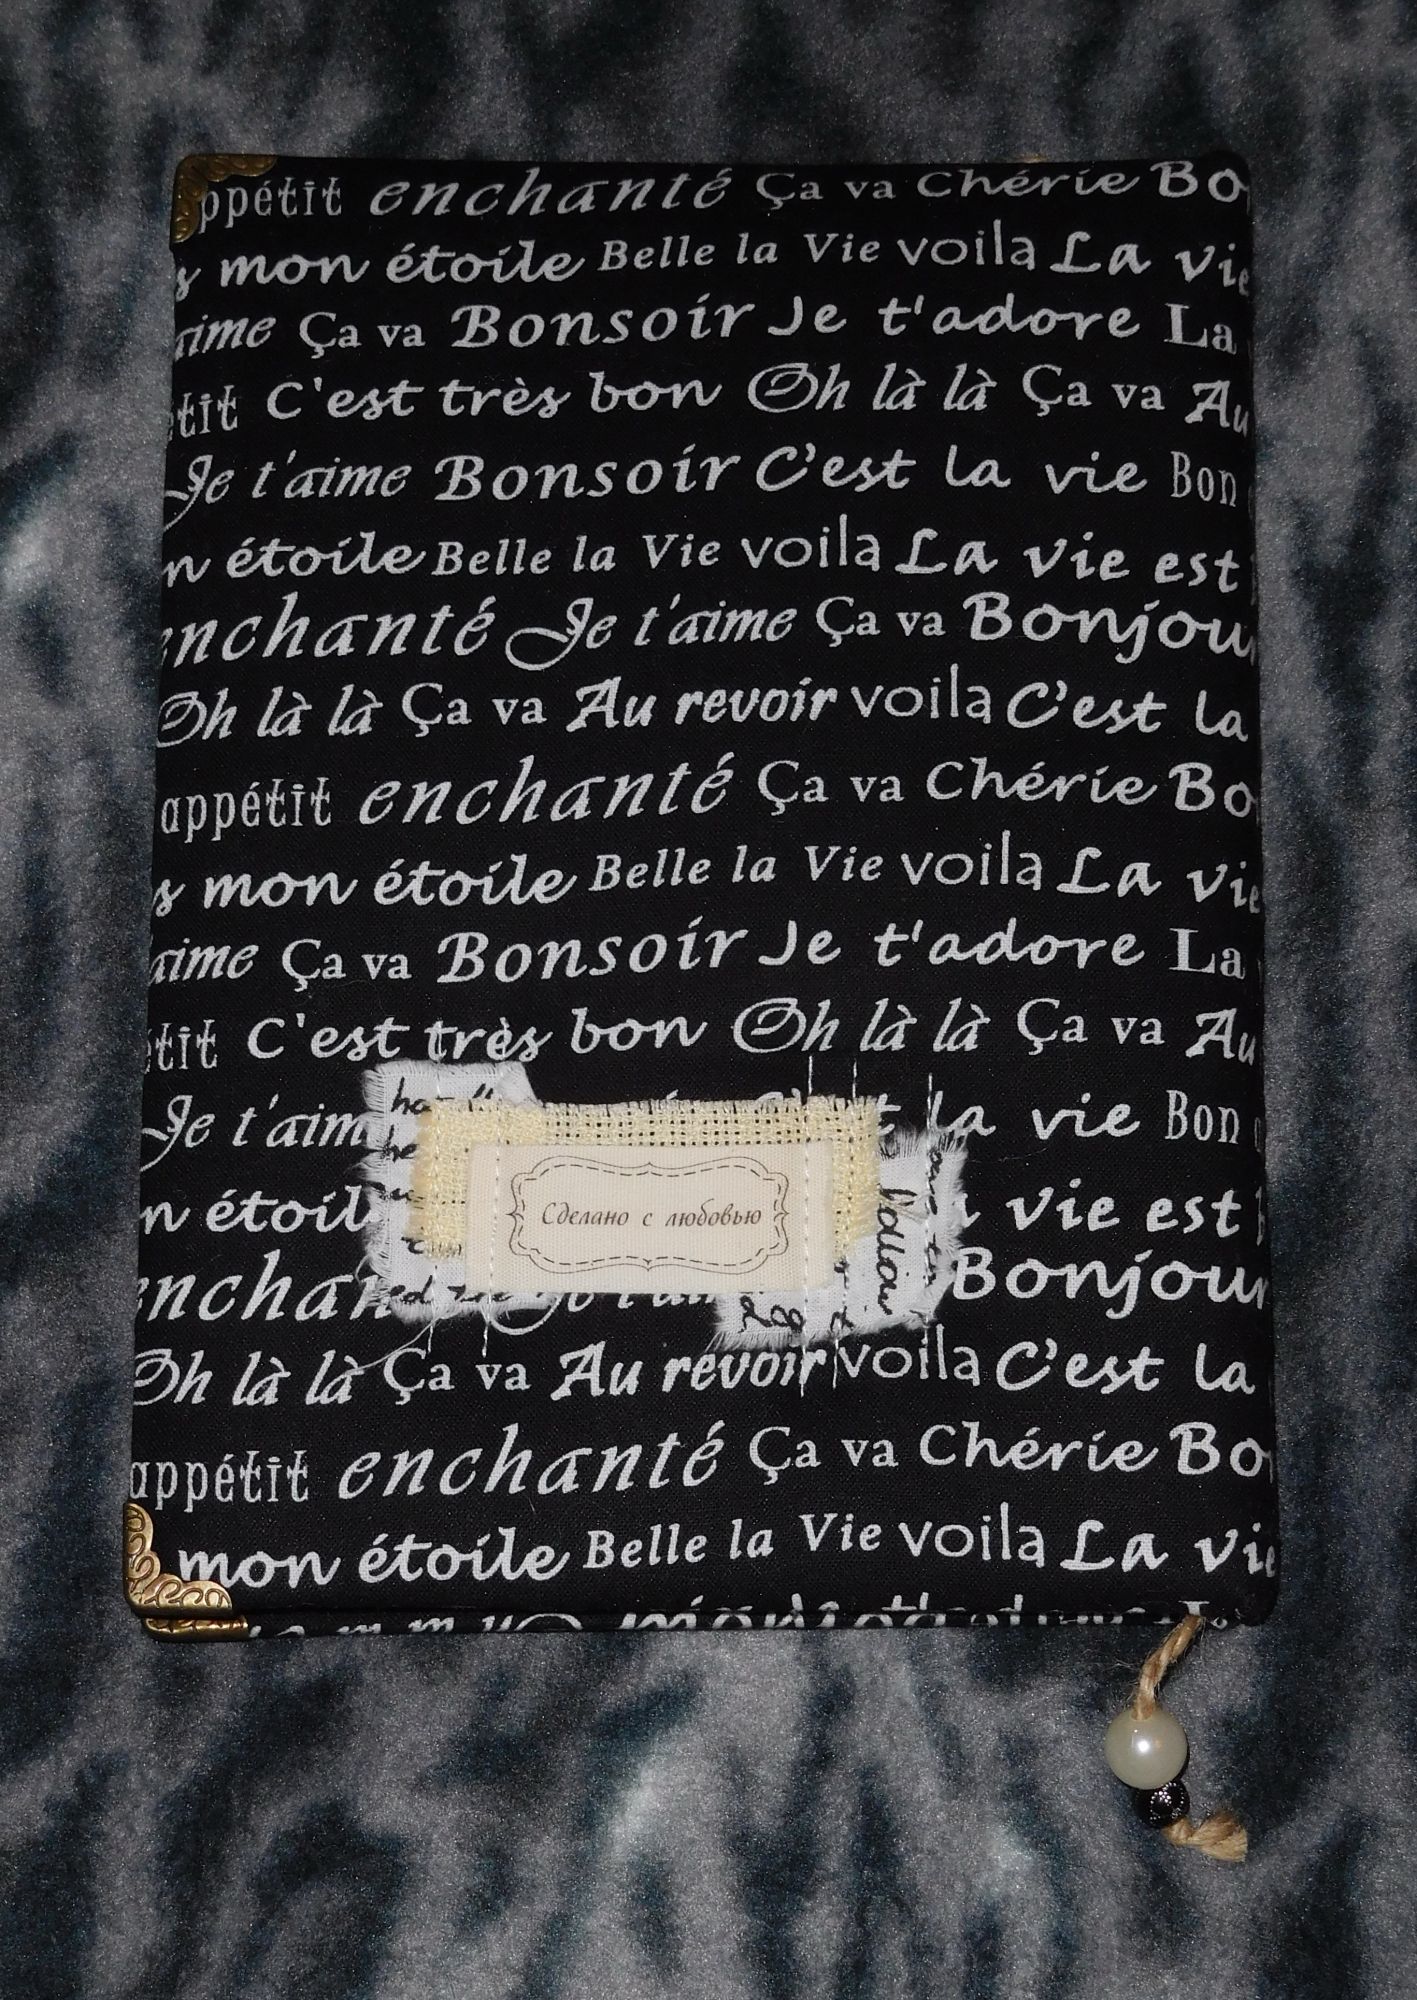 ppétit enchanté Ça va Chérie Bo
s mon étoile Belle la Vie voila La vie
aime Ça va Bonsoir Je t'adore La
étit C'est très bon Oh là là Ça va Au
Je t'aime Bonsoir C'est la vie Bon
n étoile Belle la Vie voila La vie est
enchanté Je t'aime Ça va Bonjour
Oh là là Ça va Au revoir voila C'est la
appétit enchanté Ça va Chérie Bo
s mon étoile Belle la Vie voila La vie
aime Ça va Bonsoir Je t'adore La
étit C'est très bon Oh là là Ça va Au
Je t'aim la vie Bon
n étoil vie est
Сделано с любовью
follow
encha Bonjour
Oh là là Ça va Au revoir voila C'est la
appétit enchanté Ça va Chérie Bo
mon étoile Belle la Vie voila La vie